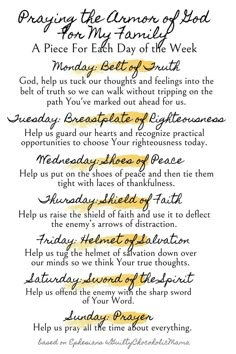 Praying the Armor of God
For My Family
A Piece For Each Day of the Week
Monday: Belt of Truth
God, help us tuck our thoughts and feelings into the
belt of truth so we can walk without tripping on the
path You've marked out ahead for us.
Tuesday: Breastplate of Righteousness
Help us guard our hearts and recognize practical
opportunities to choose Your righteousness today.
Wednesday: Shoes of Peace
Help us put on the shoes of peace and then tie them
tight with laces of thankfulness.
Thursday: Shield of Faith
Help us raise the shield of faith and use it to deflect
the enemy's arrows of distraction.
Friday: Helmet of Salvation
Help us tug the helmet of salvation down over
our minds so we think Your true thoughts.
Saturday: Sword of the Spirit
Help us offend the enemy with the sharp sword
of Your Word.
Sunday: Prayer
Help us pray all the time about everything.
based on Ephesians #GuiltyChocoholicMama